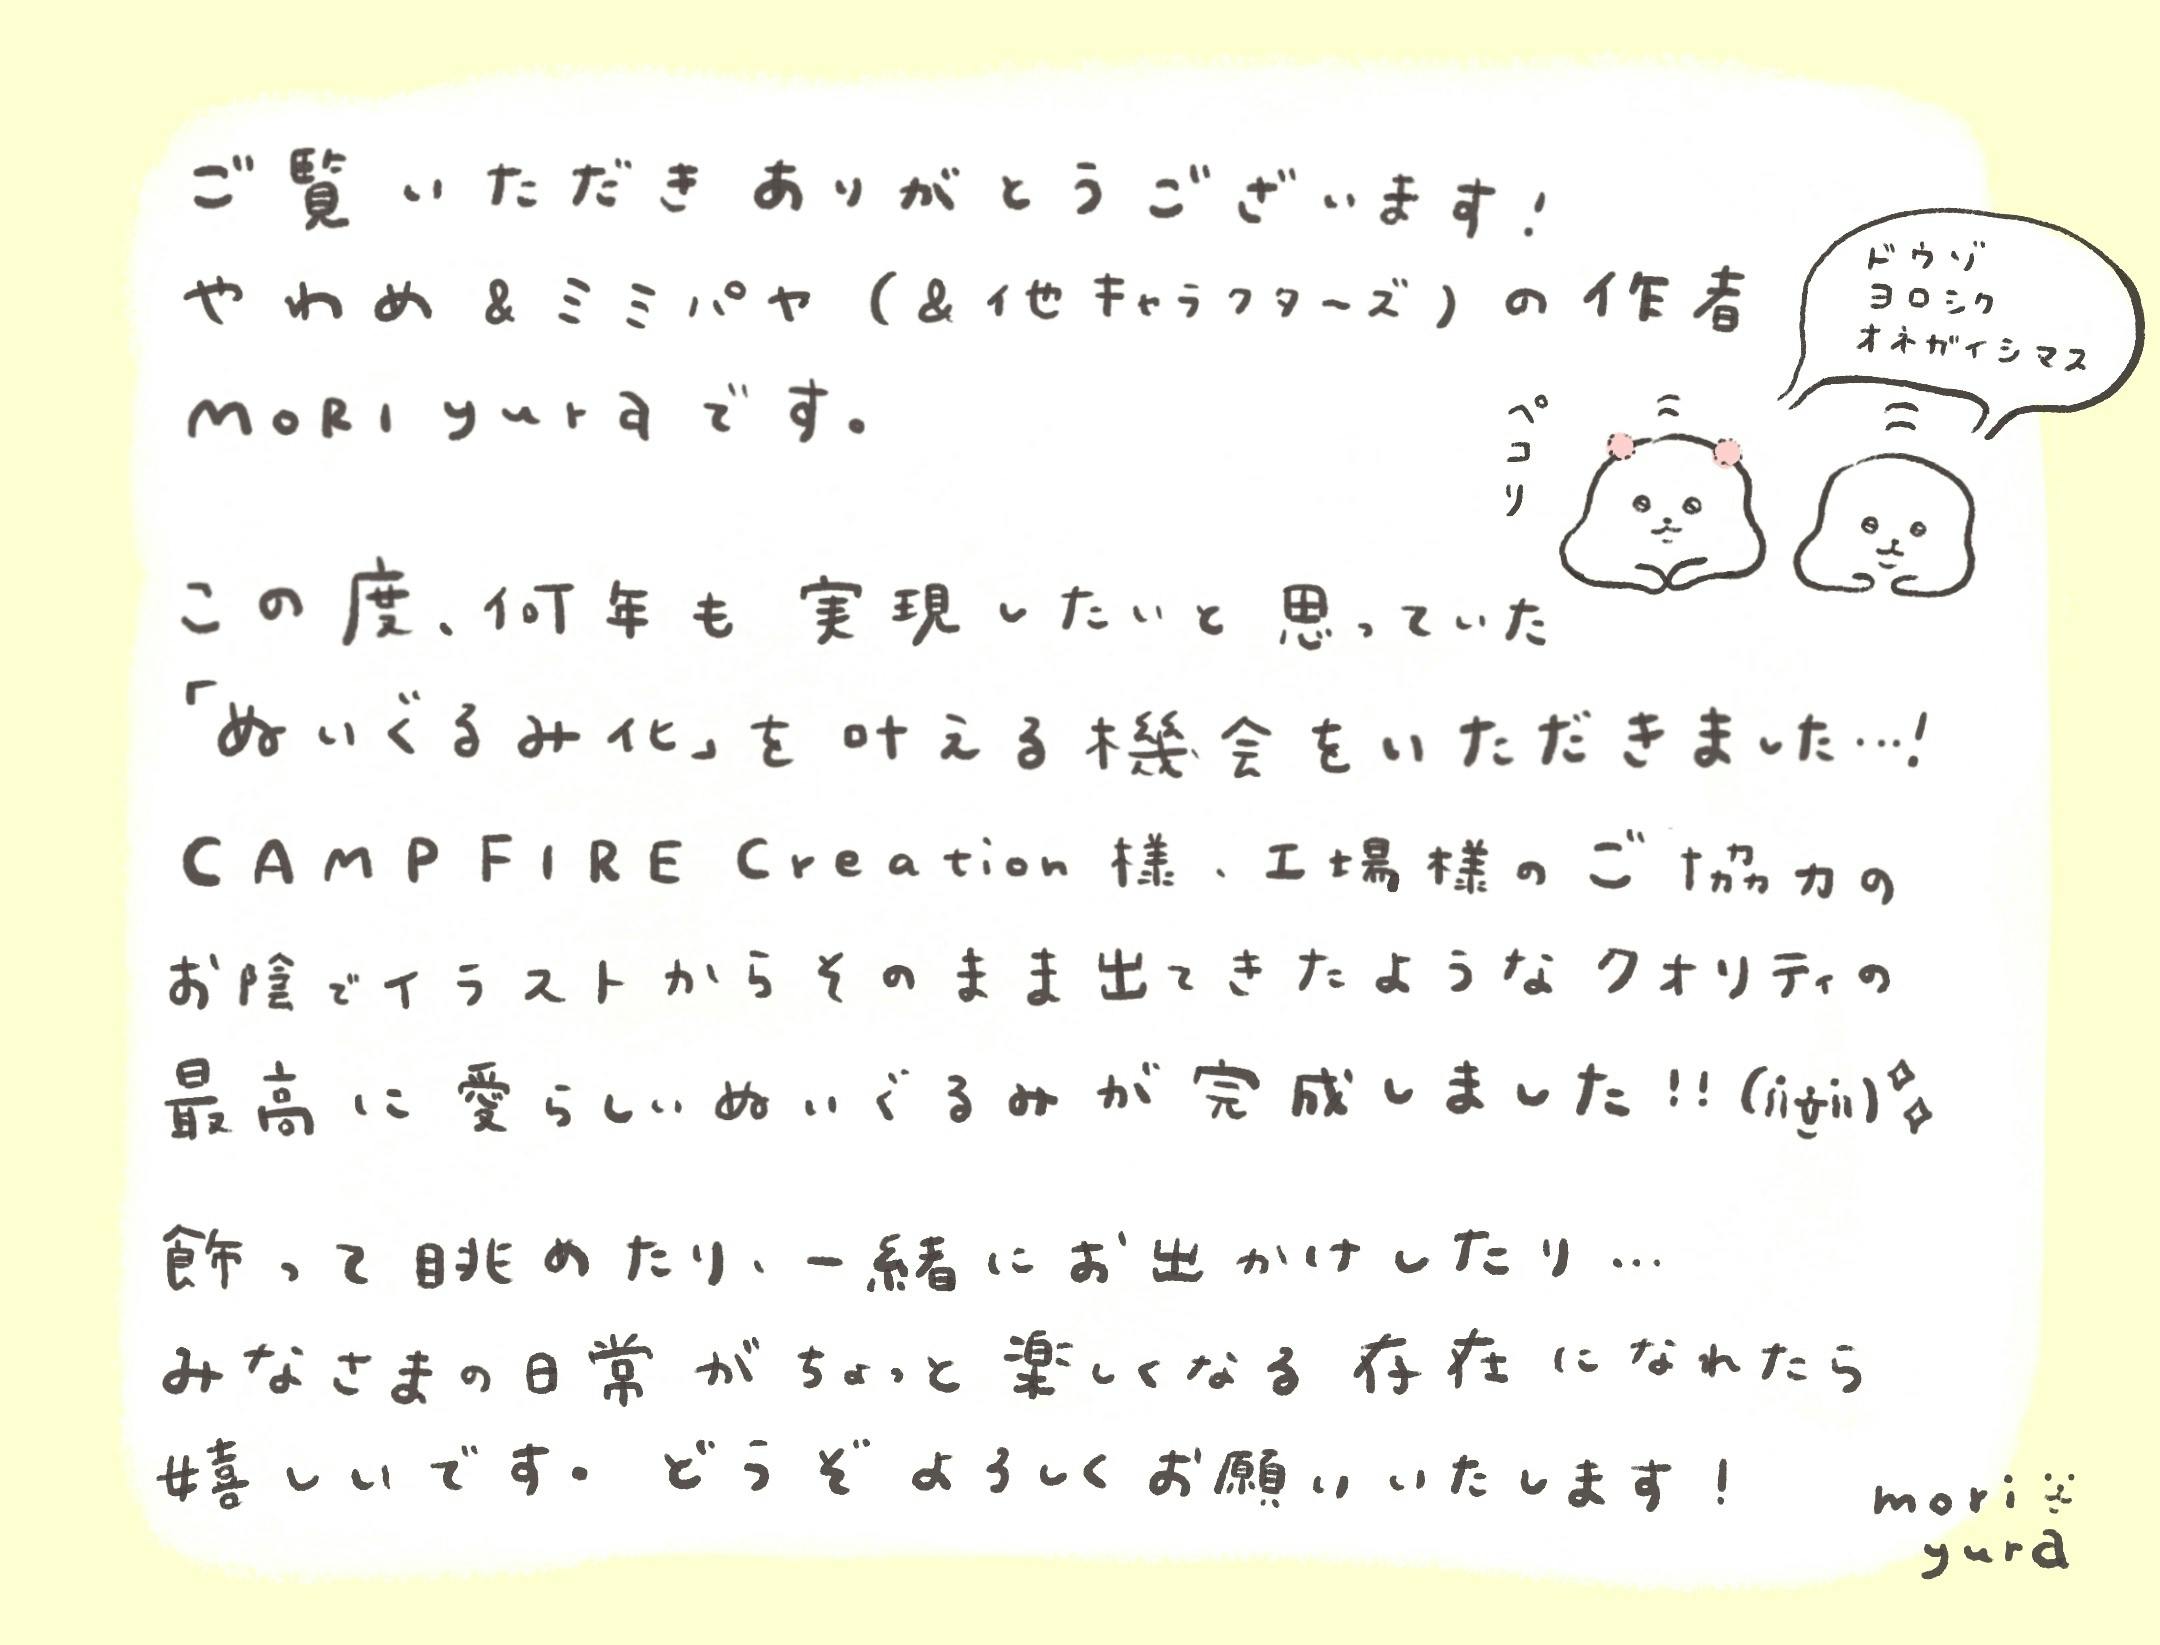 ご覧いただきありがとうございます!
やわめ&ミミパヤ(&他キャラクターズ)の作者
MORI yuraです。
ドウゾ
ヨロシク
オネガイシマス
ペコリ
この度、何年も実現したいと思っていた
「ぬいぐるみ化」を叶える機会をいただきました…!
CAMPFIRE Creation様、工場様のご協力の
お陰でイラストからそのまま出てきたようなクオリティの
最高に愛らしいぬいぐるみが完成しました!!
飾って眺めたり、一緒にお出かけしたり…
みなさまの日常がちょっと楽しくなる存在になれたら
嬉しいです。どうぞよろしくお願いいたします!
mori
yura